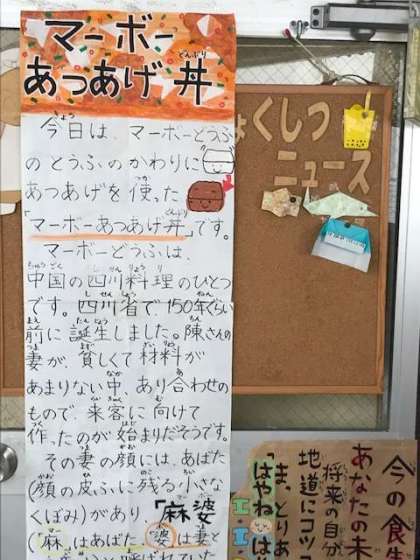 マーボー
あつあげ丼
今日は、マーボーどうふ
のとうふのかわりに
あつあげを使った
「マーボーあつあげ丼」です。
マーボーどうふは、
中国の四川料理のひとつ
です。四川省で150年ぐらい
前に誕生しました。陳さんの
妻が、貧しくて材料が
あまりない中、あり合わせの
もので、来客に向けて
作ったのが始まりだそうです。
その妻の顔には、あばた
(顔の皮ふに残る小さな
くぼみ)があり、「麻婆
(「麻」はあばた、「婆」は妻と
ょくしつ
ニュース
今の食生
あなたの未
将来の自分
地道にコツコ
ま、とりあ
「はやね」は